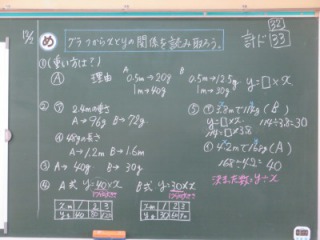 12/2
め グラフから2とりの関係を読み取ろう。
計ド 32 33
①(重い方は?)
Ⓐ 理由 A 0.5m→20g 1m→40g
B 0.5m→12.5g 1m→30g
y=□×x
②㋐ 2.4mの重さ
A→96g B→72g
㋑ 48gの長さ
A→1.2m B→1.6m
③ A→40g B→30g
④ A式 y=40×x B式 y=30×x
xm 1 2 3
yg 40 80 120
xm 1 2 3
yg 30 60 90
⑤① 3.8mで114g(B)
y=□×x 114÷3.8=30
114=□×3.8
① 4.2mで168g(A)
168÷4.2=40
決まった数 y÷x